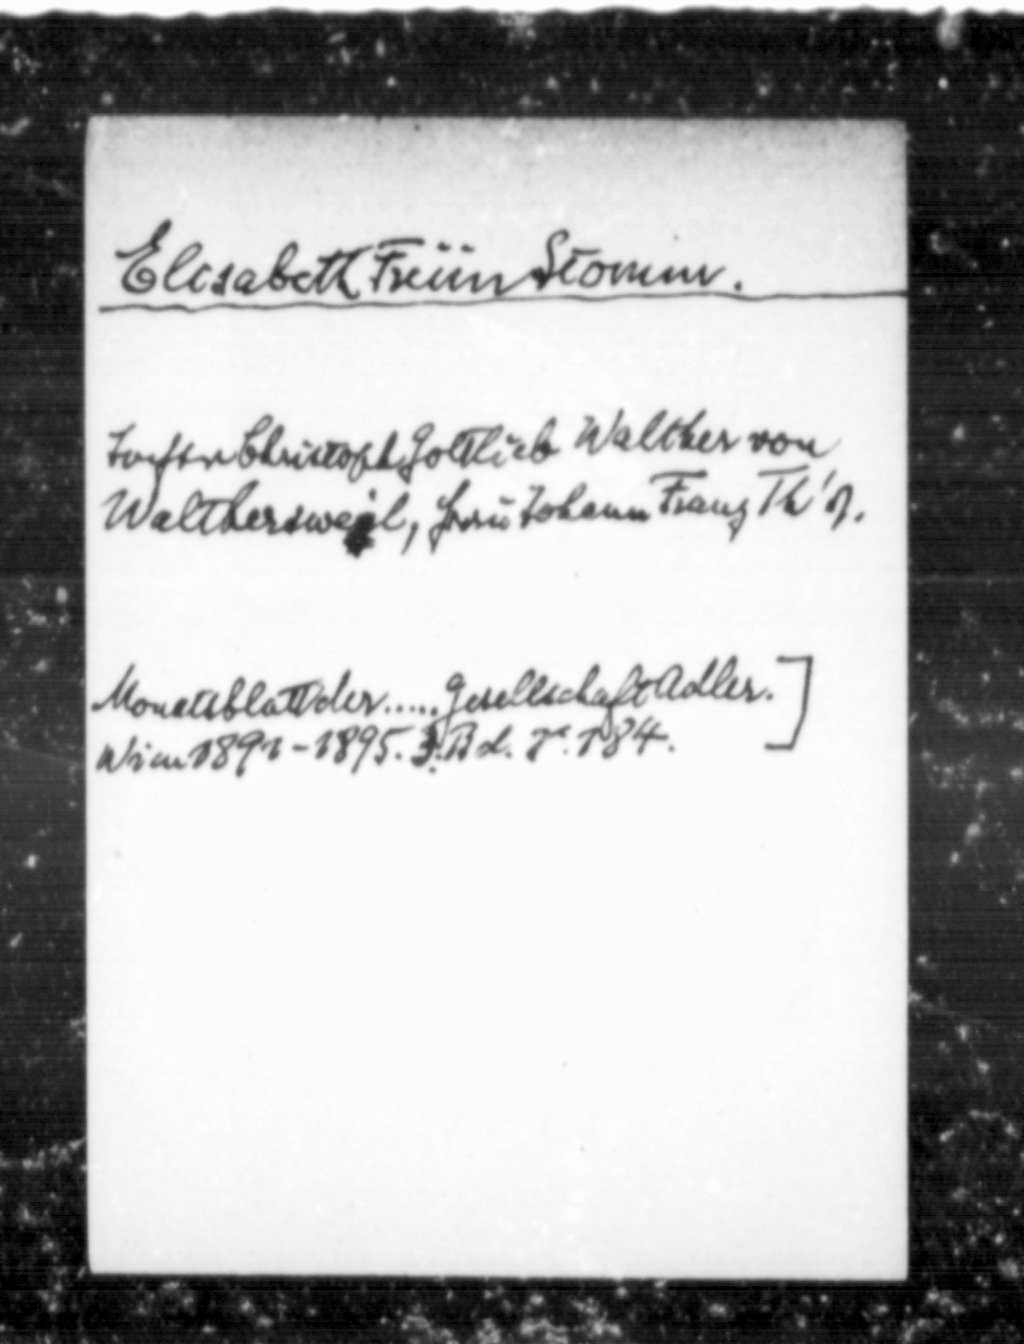 Elisabeth Freiin Stomm.
Tochter Christoph Gottlieb Walther von
Waltersweil, Frau Johann Franz Th's.
Monatsblatt der..... Gesellschaft Adler.]
Wien 1891-1895. 3. Bd. S. 184.